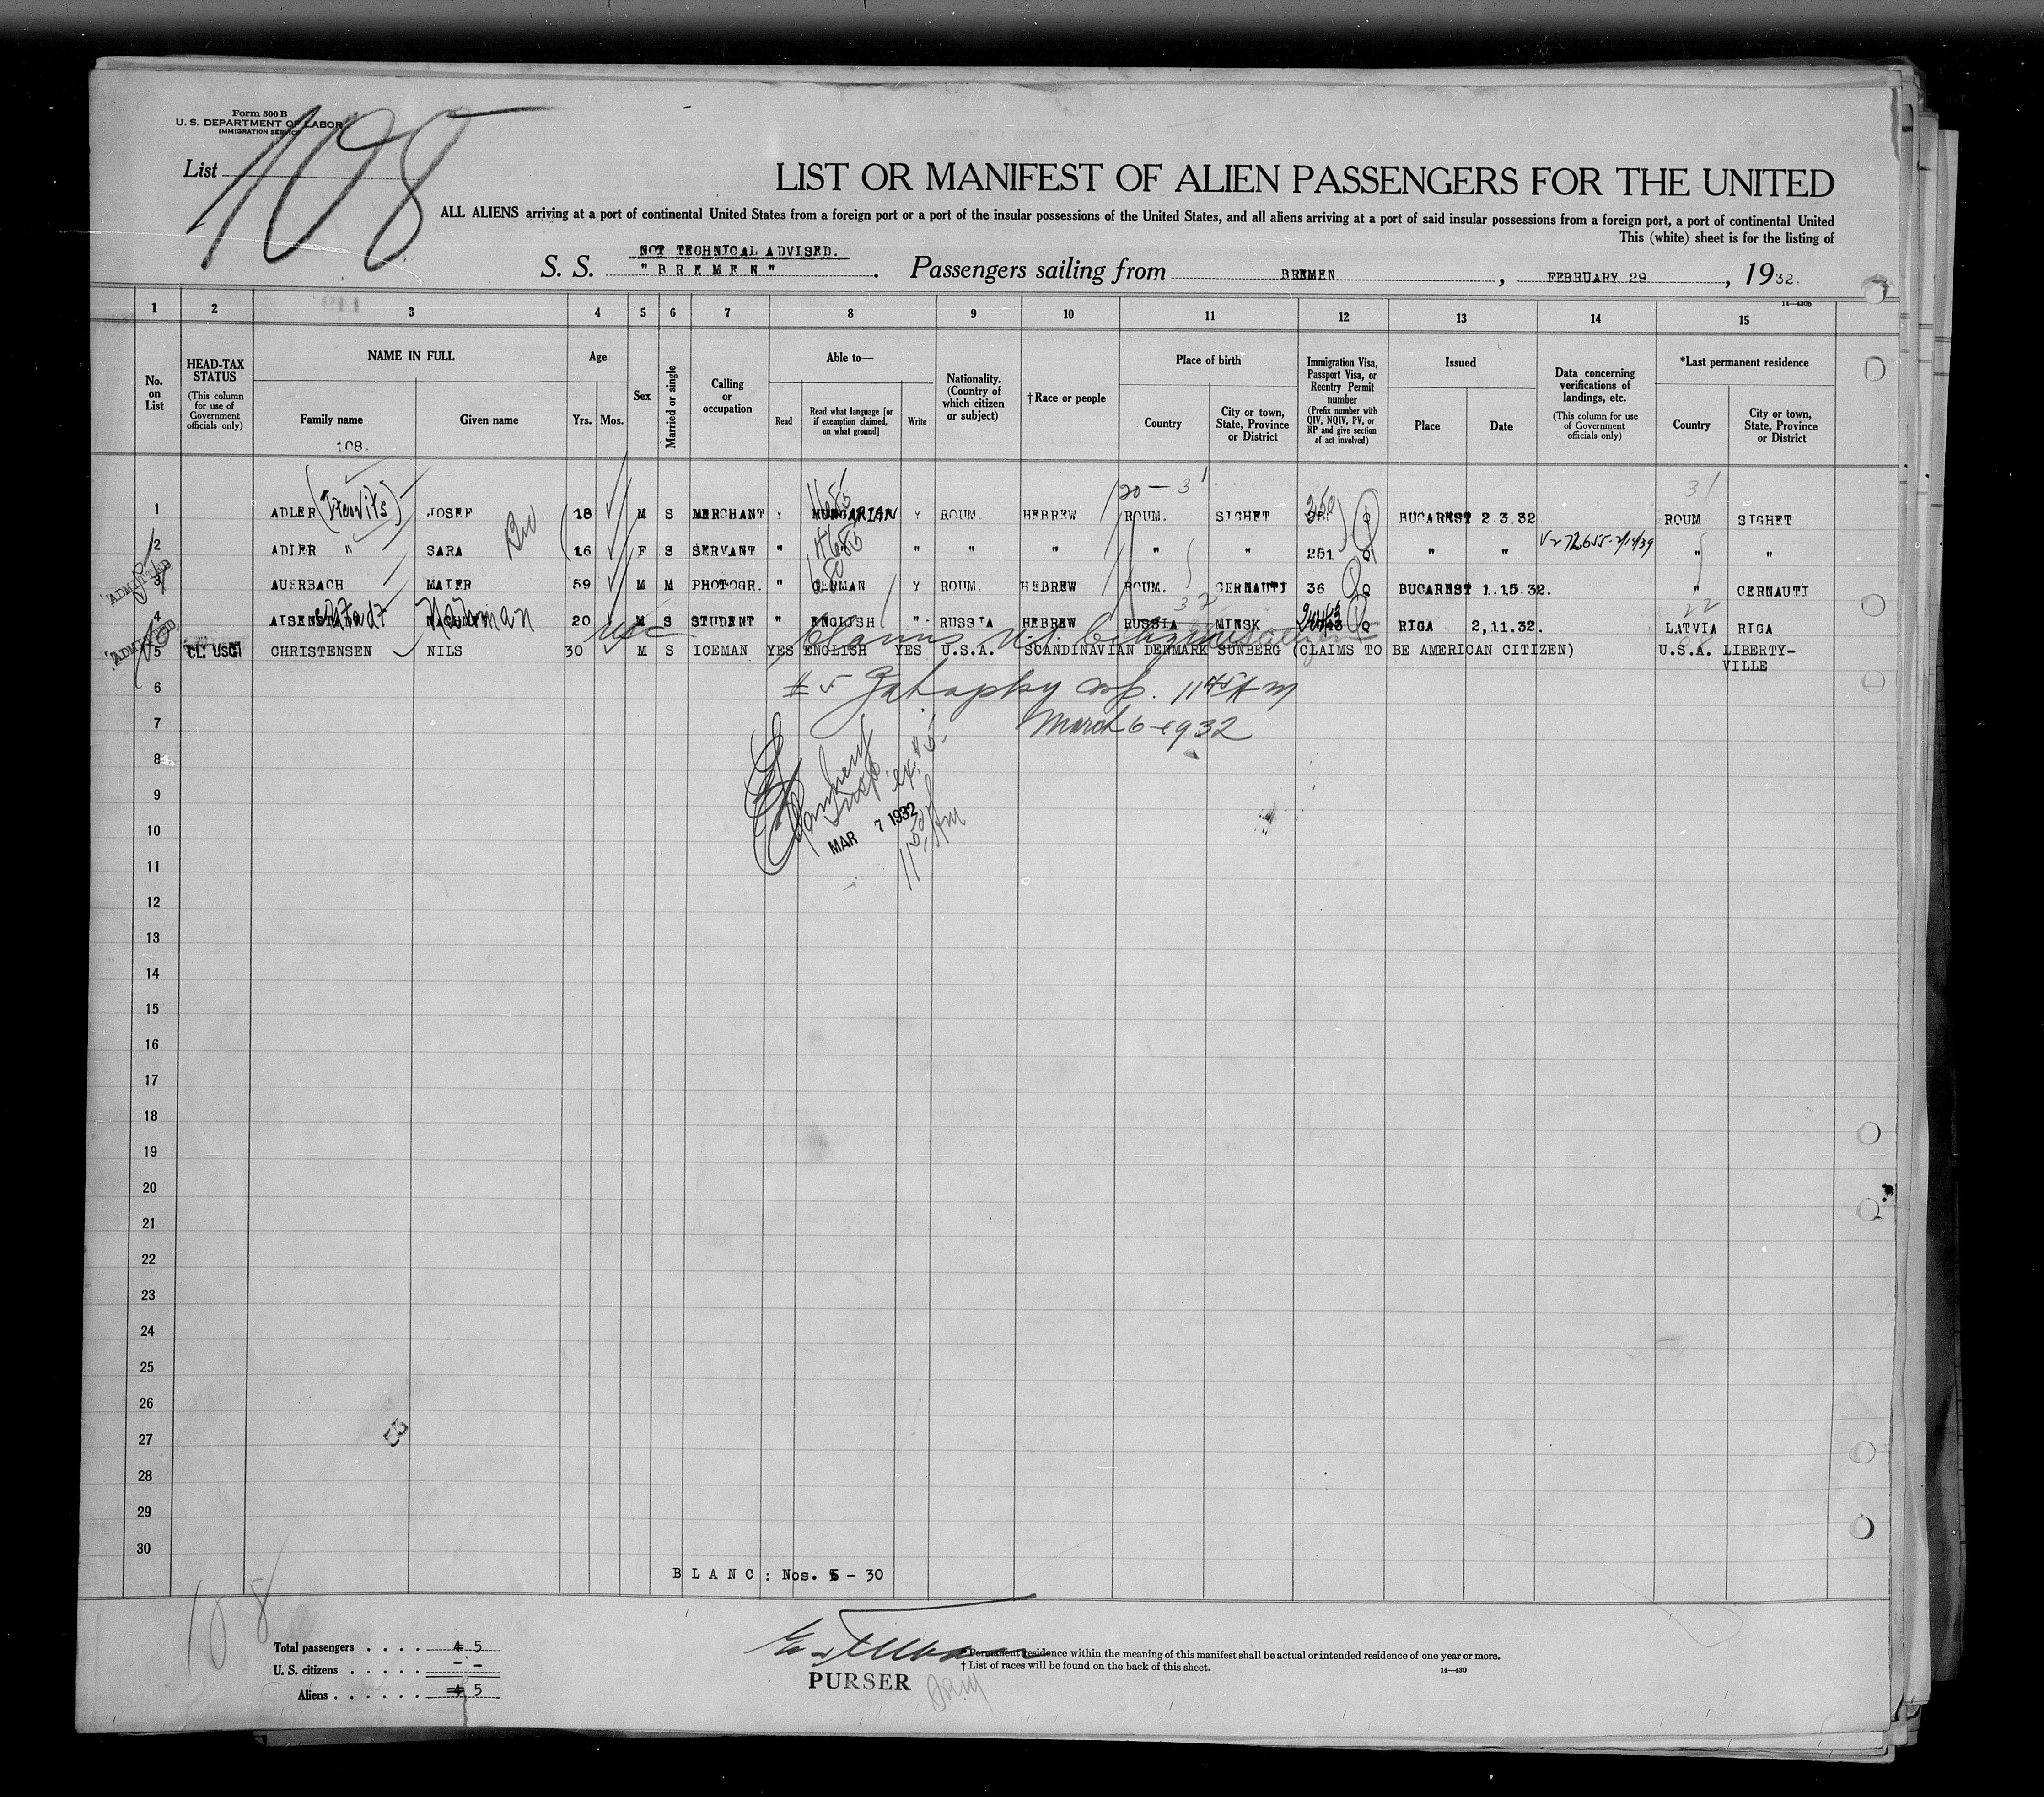 Form 500 B
U. S. DEPARTMENT OF LABOR
IMMIGRATION SERVICE
List 108
LIST OR MANIFEST OF ALIEN PASSENGERS FOR THE UNITED
ALL ALIENS arriving at a port of continental United States from a foreign port or a port of the insular possessions of the United States, and all aliens arriving at a port of said insular possessions from a foreign port, a port of continental United
This (white) sheet is for the listing of
NOT TECHNICAL ADVISED.
S. S. "BREMEN". Passengers sailing from BREMEN, FEBRUARY 29, 1932.
14—430b
1 2 3 4 5 6 7 8 9 10 11 12 13 14 15
No. on List
HEAD-TAX STATUS
(This column for use of Government officials only)
NAME IN FULL
Family name
Given name
108.
Age
Yrs. Mos.
Sex
Married or single
Calling or occupation
Able to—
Read
Read what language [or if exemption claimed, on what ground]
Write
Nationality. (Country of which citizen or subject)
†Race or people
Place of birth
Country
City or town, State, Province or District
Immigration Visa, Passport Visa, or Reentry Permit number
(Prefix number with QIV, NQIV, PV, or RP and give section of act involved)
Issued
Place
Date
Data concerning verifications of landings, etc.
(This column for use of Government officials only)
*Last permanent residence
Country
City or town, State, Province or District
20 – 31 31
1 ADLER JOSEF 18 M S MERCHANT HUNGARIAN Y ROUM. HEBREW ROUM. SIGHET 250 Q BUCAREST 2.3.32 ROUM SIGHET
2 ADLER " SARA 16 F S SERVANT " " " " " " " 251 Q " " " "
3 AUERBACH MAIER 59 M M PHOTOGR. " GERMAN Y ROUM. HEBREW ROUM. CERNAUTI 36 Q BUCAREST 1.15.32. " CERNAUTI
ADMITTED
4 AISENSTADT Nahman 20 M S STUDENT " ENGLISH " RUSSIA HEBREW RUSSIA MINSK Q RIGA 2,11.32. LATVIA RIGA
ADMITTED
USC Claims U.S. Citizen
5 CL: USC CHRISTENSEN NILS 30 M S ICEMAN YES ENGLISH YES U.S.A. SCANDINAVIAN DENMARK SUNBERG (CLAIMS TO BE AMERICAN CITIZEN) U.S.A. LIBERTY-
VILLE
6 #5
7 March 6 - 1932
8
9
MAR 7 1932
10
11
12
13
14
15
16
17
18
19
20
21
22
23
24
25
26
27
28
29
30
BLANC: Nos. 6 – 30
108
Total passengers . . . . 4 5
U. S. citizens . . . . . – –
Aliens . . . . . . 4 5
PURSER
*Permanent residence within the meaning of this manifest shall be actual or intended residence of one year or more.
†List of races will be found on the back of this sheet.
14—430